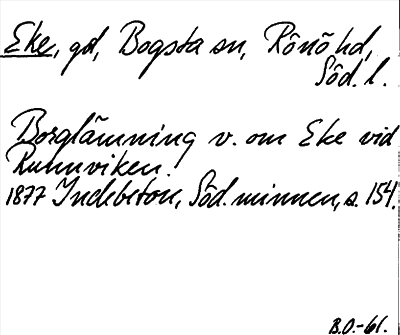 Eke, gd, Bogsta sn, Rönö hd,
Söd. l.
Borglämning v. om Eke vid
Runnviken.
1877 Indebetou, Söd. minnen, s. 154.
B.O.-61.